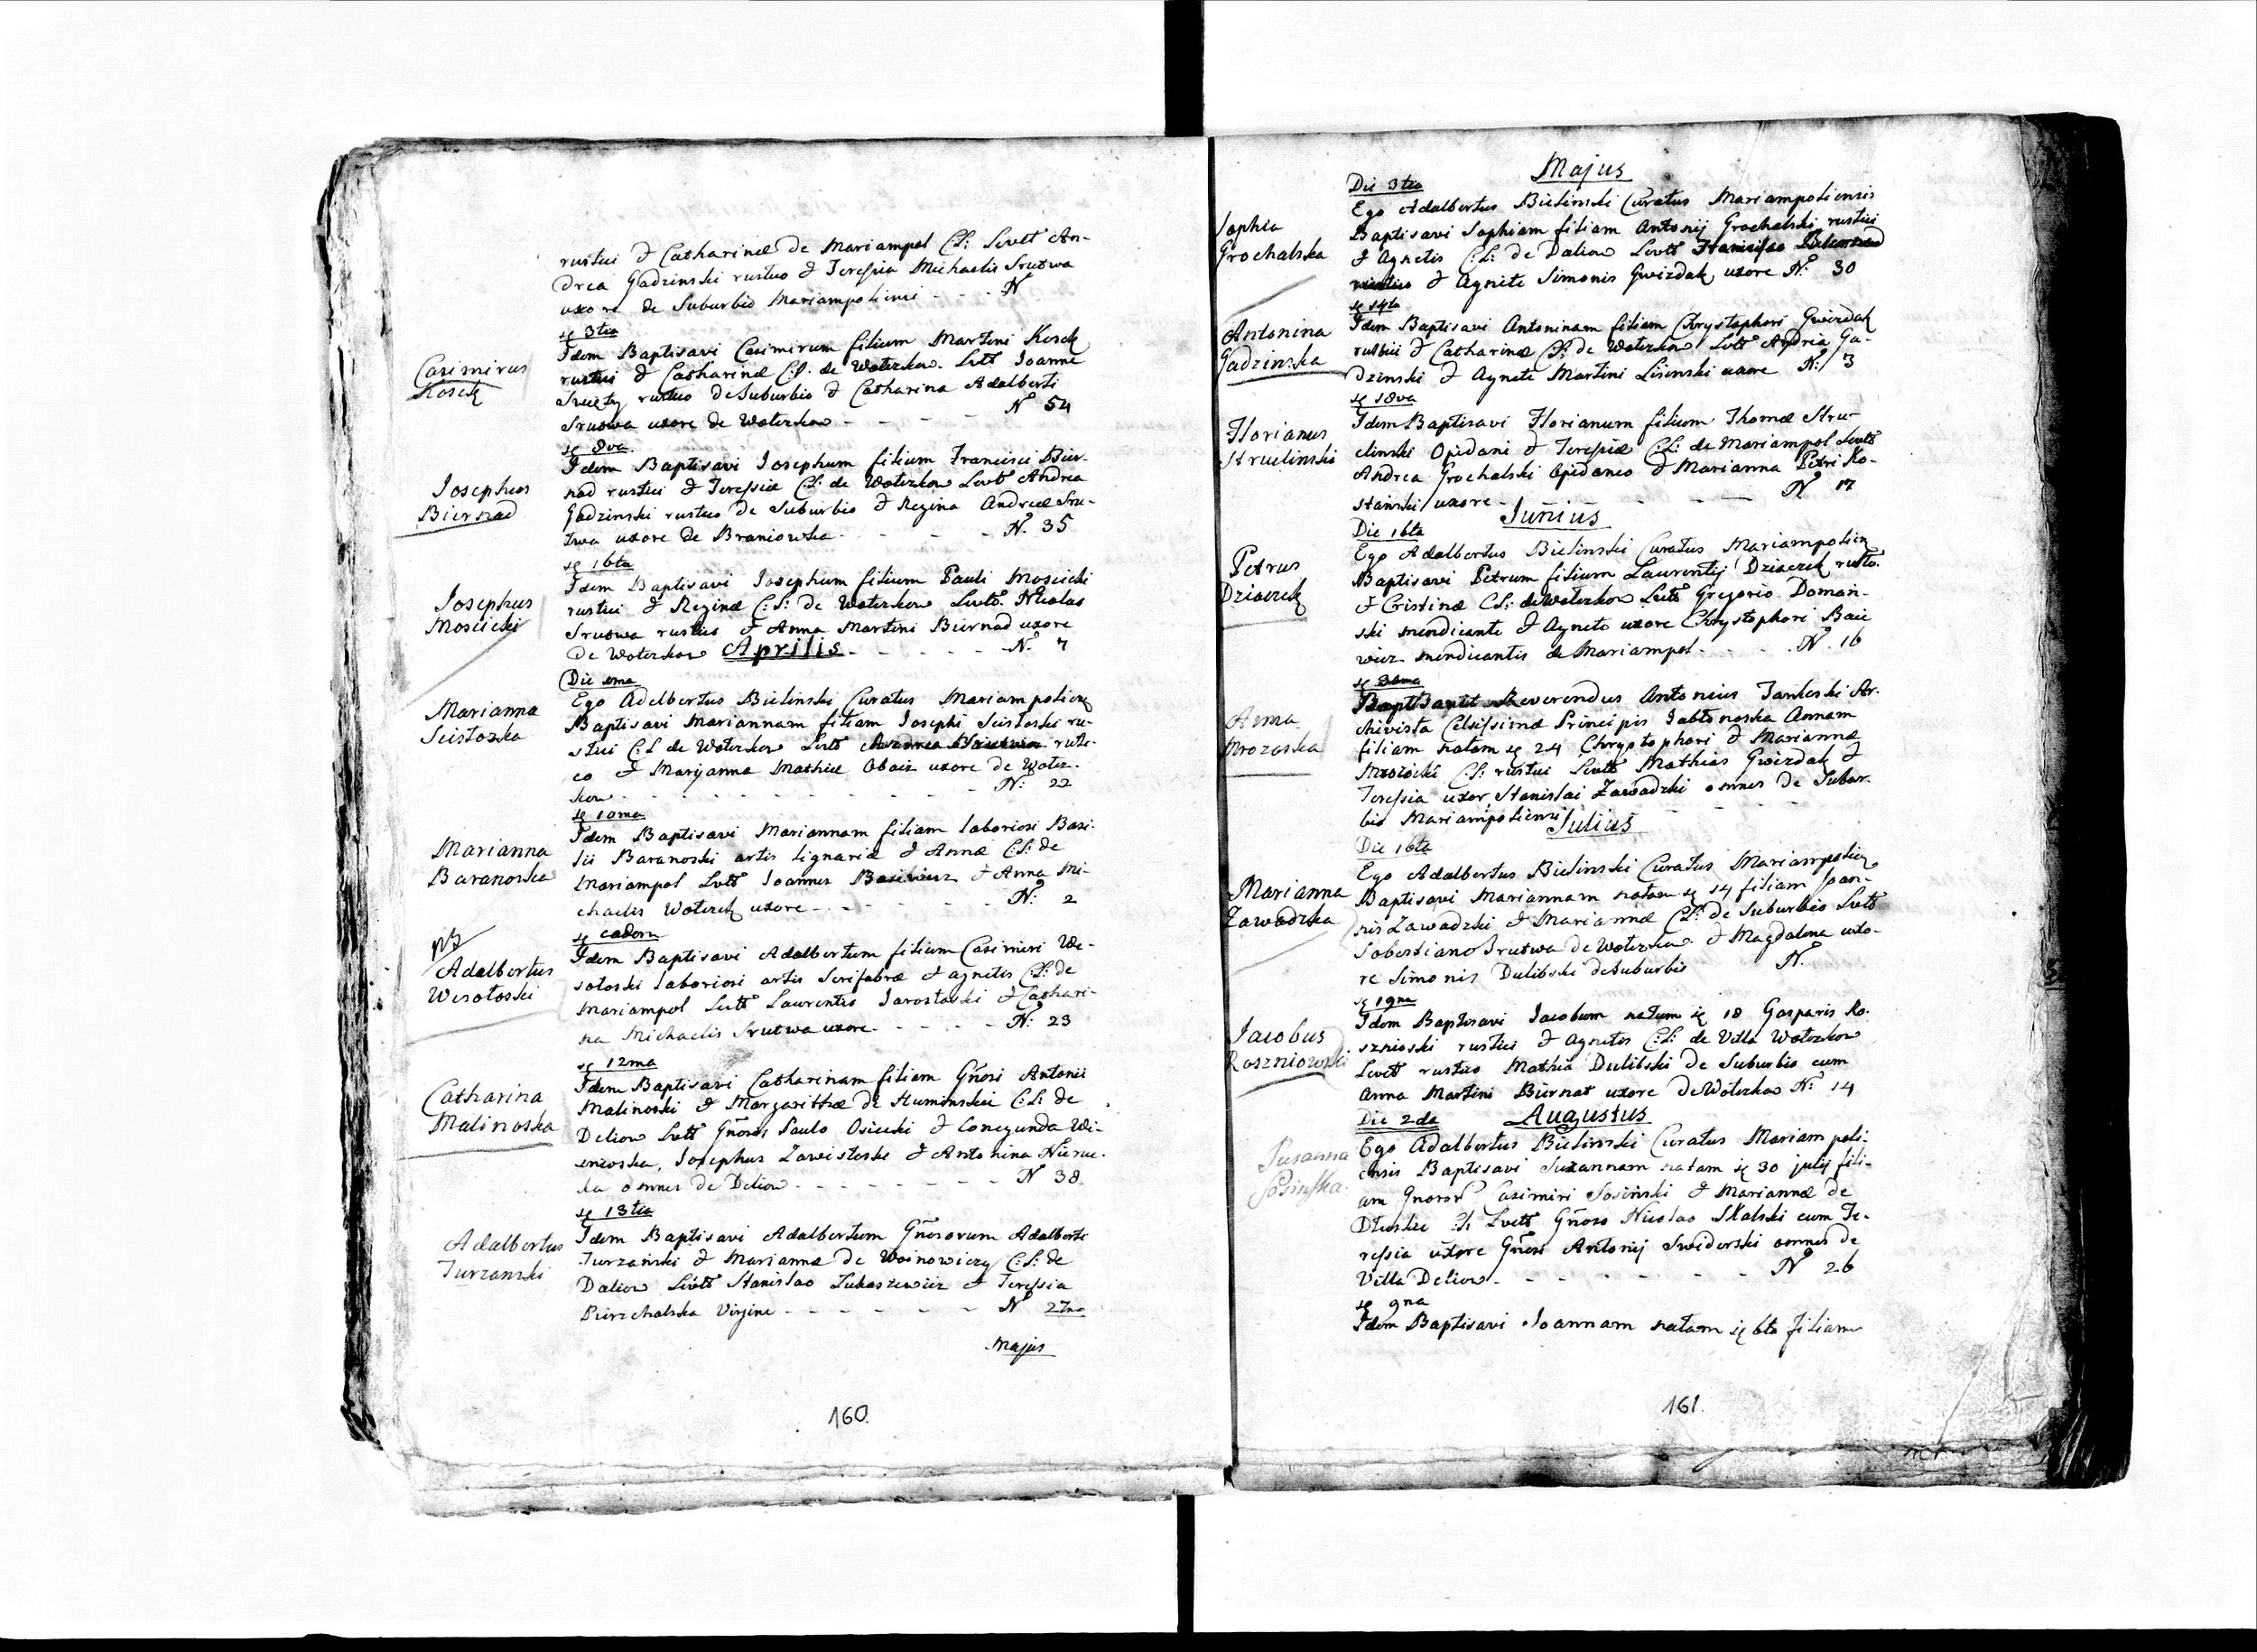 rustici & Catharinæ de Mariampol C:L: Levtt An-
drea Gadzinski rustico & Teressia Michaelis Srutwa
uxore de Suburbio Mariampoliensi - - - N
Casimirus
Kosck
ię 3tia
Idem Baptisavi Casimirum filium Martini Kosck
rustici & Catharinæ C:L: de Woterkow. Levtt Joanne
rustico de Suburbio & Catharina Adalberti
Srutwa uxore de Woterkow - - - N 54
Josephus
Biernad
ię 8va
Idem Baptisavi Josephum filium Francisci Bier-
nad rustici & Teressiæ C:L: de Woterkow Levtt Andrea
Gadzinski rustico de Suburbio & Regina Andreæ Sru-
twa uxore de Braniowka - - - N. 35
Josephus
Moscicki
ię 16ta
Idem Baptisavi Josephum filium Pauli Moscicki
rustici & Reginæ C:L: de Woterkow Levtt. Nicolao
Srutwa rustico & Anna Martini Biernad uxore
de Woterkow - - - - - N. 7
Aprilis
Marianna
Die
Ego Adelbertus Bielinski Curatus Mariampolien
Baptisavi Mariannam filiam Josephi ru-
stici C:L de Woterkow Levtt rusti-
co & Maryanna Mathiæ uxore de Woter-
kow - - - - - - N: 22
Marianna
Baranoska
ię 10ma
Idem Baptisavi Mariannam filiam laboriosi Basi-
lii Baranoski artis lignariæ & Annæ C:L: de
Mariampol Levtt Joannes & Anna Mi-
chaelis uxore - - - - - N: 2
Adalbertus
Wesotoski
ię eadem
Idem Baptisavi Adalbertum filium Casimiri We-
sotoski laboriosi artis & agnetis C:L: de
Mariampol Levtt Laurentio Jarostaski & Cathari-
na Michaelis Srutwa uxore - - - - N: 23
Catharina
Malinoska
ię 12ma
Idem Baptisavi Catharinam filiam Gñosi Antonii
Malinoski & Margarithæ de Huminskie C:L: de
Deliow Levtt Gñosis Paulo Osiecki & Conegunda Wi-
encoska, Josephus Zawistoski & Antonina
omnes de Deliow - - - - - - N 38
Adalbertus
Turzanski
ię 13tia
Idem Baptisavi Adalbertum Gñosorum Adalberti
Turzański & Marianna de Woinowiczy C:L: de
Daliow Levtt Stanislao Lukaszewicz & Teressia
Pierzchalska Virgine - - - - - N
Majus
160.
Majus
Sophia
Grochalska
Die 3tia
Ego Adalbertus Bielinski Curatus Mariampoliensis
Baptisavi Sophiam filiam Antonij Grochalski rustici
& Agnetis C:L: de Daliow Levtt
& Agnete Simonis Gwizdak uxore N: 30
Antonina
Gadzinska
ię 14ta
Idem Baptisavi Antoninam filiam Chrystophori Gwizdak
rustici & Catharinæ C:L: de Woterkow Levtt Andrea Ga-
dzinski & Agnete Martini Lisinski uxore N: 3
Florianus
Struclinski
ię 18va
Idem Baptisavi Florianum filium Thomæ Stru-
clinski Opidani & Teressiæ C:L: de Mariampol Levtt
Andrea Grochalski Opidaneo & Marianna Petri Ko-
stański uxore - - - N 17
Junius
Petrus
Dziaczek
Die 16ta
Ego Adalbertus Bielinski Curatus Mariampolien
Baptisavi Petrum filium Laurentij Dziaczek rusti.
& Cristinæ C:L: de Woterkow Levtt Gregorio Doman-
ski mendicante & Agnete uxore Chrystophori Baie
wicz mendicantis de Mariampol - - - N. 16
Anna
Mrozoska
Baptisavit Reverendus Antonius Jankoski Ar-
chivista Celsissimæ Principis Jabtonoska Annam
filiam natam ię 24 Chrystophori & Mariannæ
Mrozoicki C:L: rustici Levtt Mathias Gwizdak &
Teressia uxor Stanislai Zawadzki omnes de Subur-
bio Mariampoliensi
Julius
Marianna
Zawadzka
Die 16ta
Ego Adalbertus Bielinski Curatus Mariampolien
Baptisavi Mariannam natam ię 14 filiam Joan-
nis Zawadzki & Mariannæ C:L: de Suburbio Levtt
Sobestiano Srutwa de Woterkow & Magdalena uxo-
re Simonis Dulibski de Suburbio N.
Jacobus
Roszniowski
ię 19na
Idem Baptisavi Jacobum natum ię 18 Gasparis Ro-
sznioski rustici & Agnetis C:L: de Villa Woterkow
Levtt rustico Mathia Dulibski de Suburbio cum
Anna Martini Biernat uxore de Woterkow N: 14
Augustus
Susanna
Sosinska.
Die 2da
Ego Adalbertus Bielinski Curatus Mariampoli-
ensis Baptisavi Suzannam natam ię 30 julij fili-
am Gnosor Casimiri Sosiński & Mariannæ de
Levtt Gñoso Nicolao Skalski cum Te-
ressia uxore Gñosi Antonij Swiderski omnes de
Villa Deliow - - - - - - N 26
ię 9na
Idem Baptisavi Joannam natam ię 6ta filiam
161.